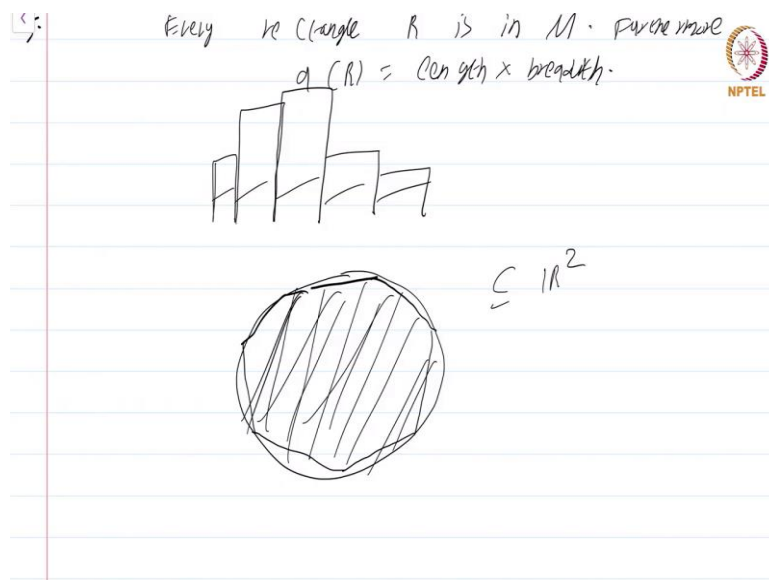 Every rectangle R is in M. Furthermore
a(R) = length x breadth.
NPTEL
⊆ IR²